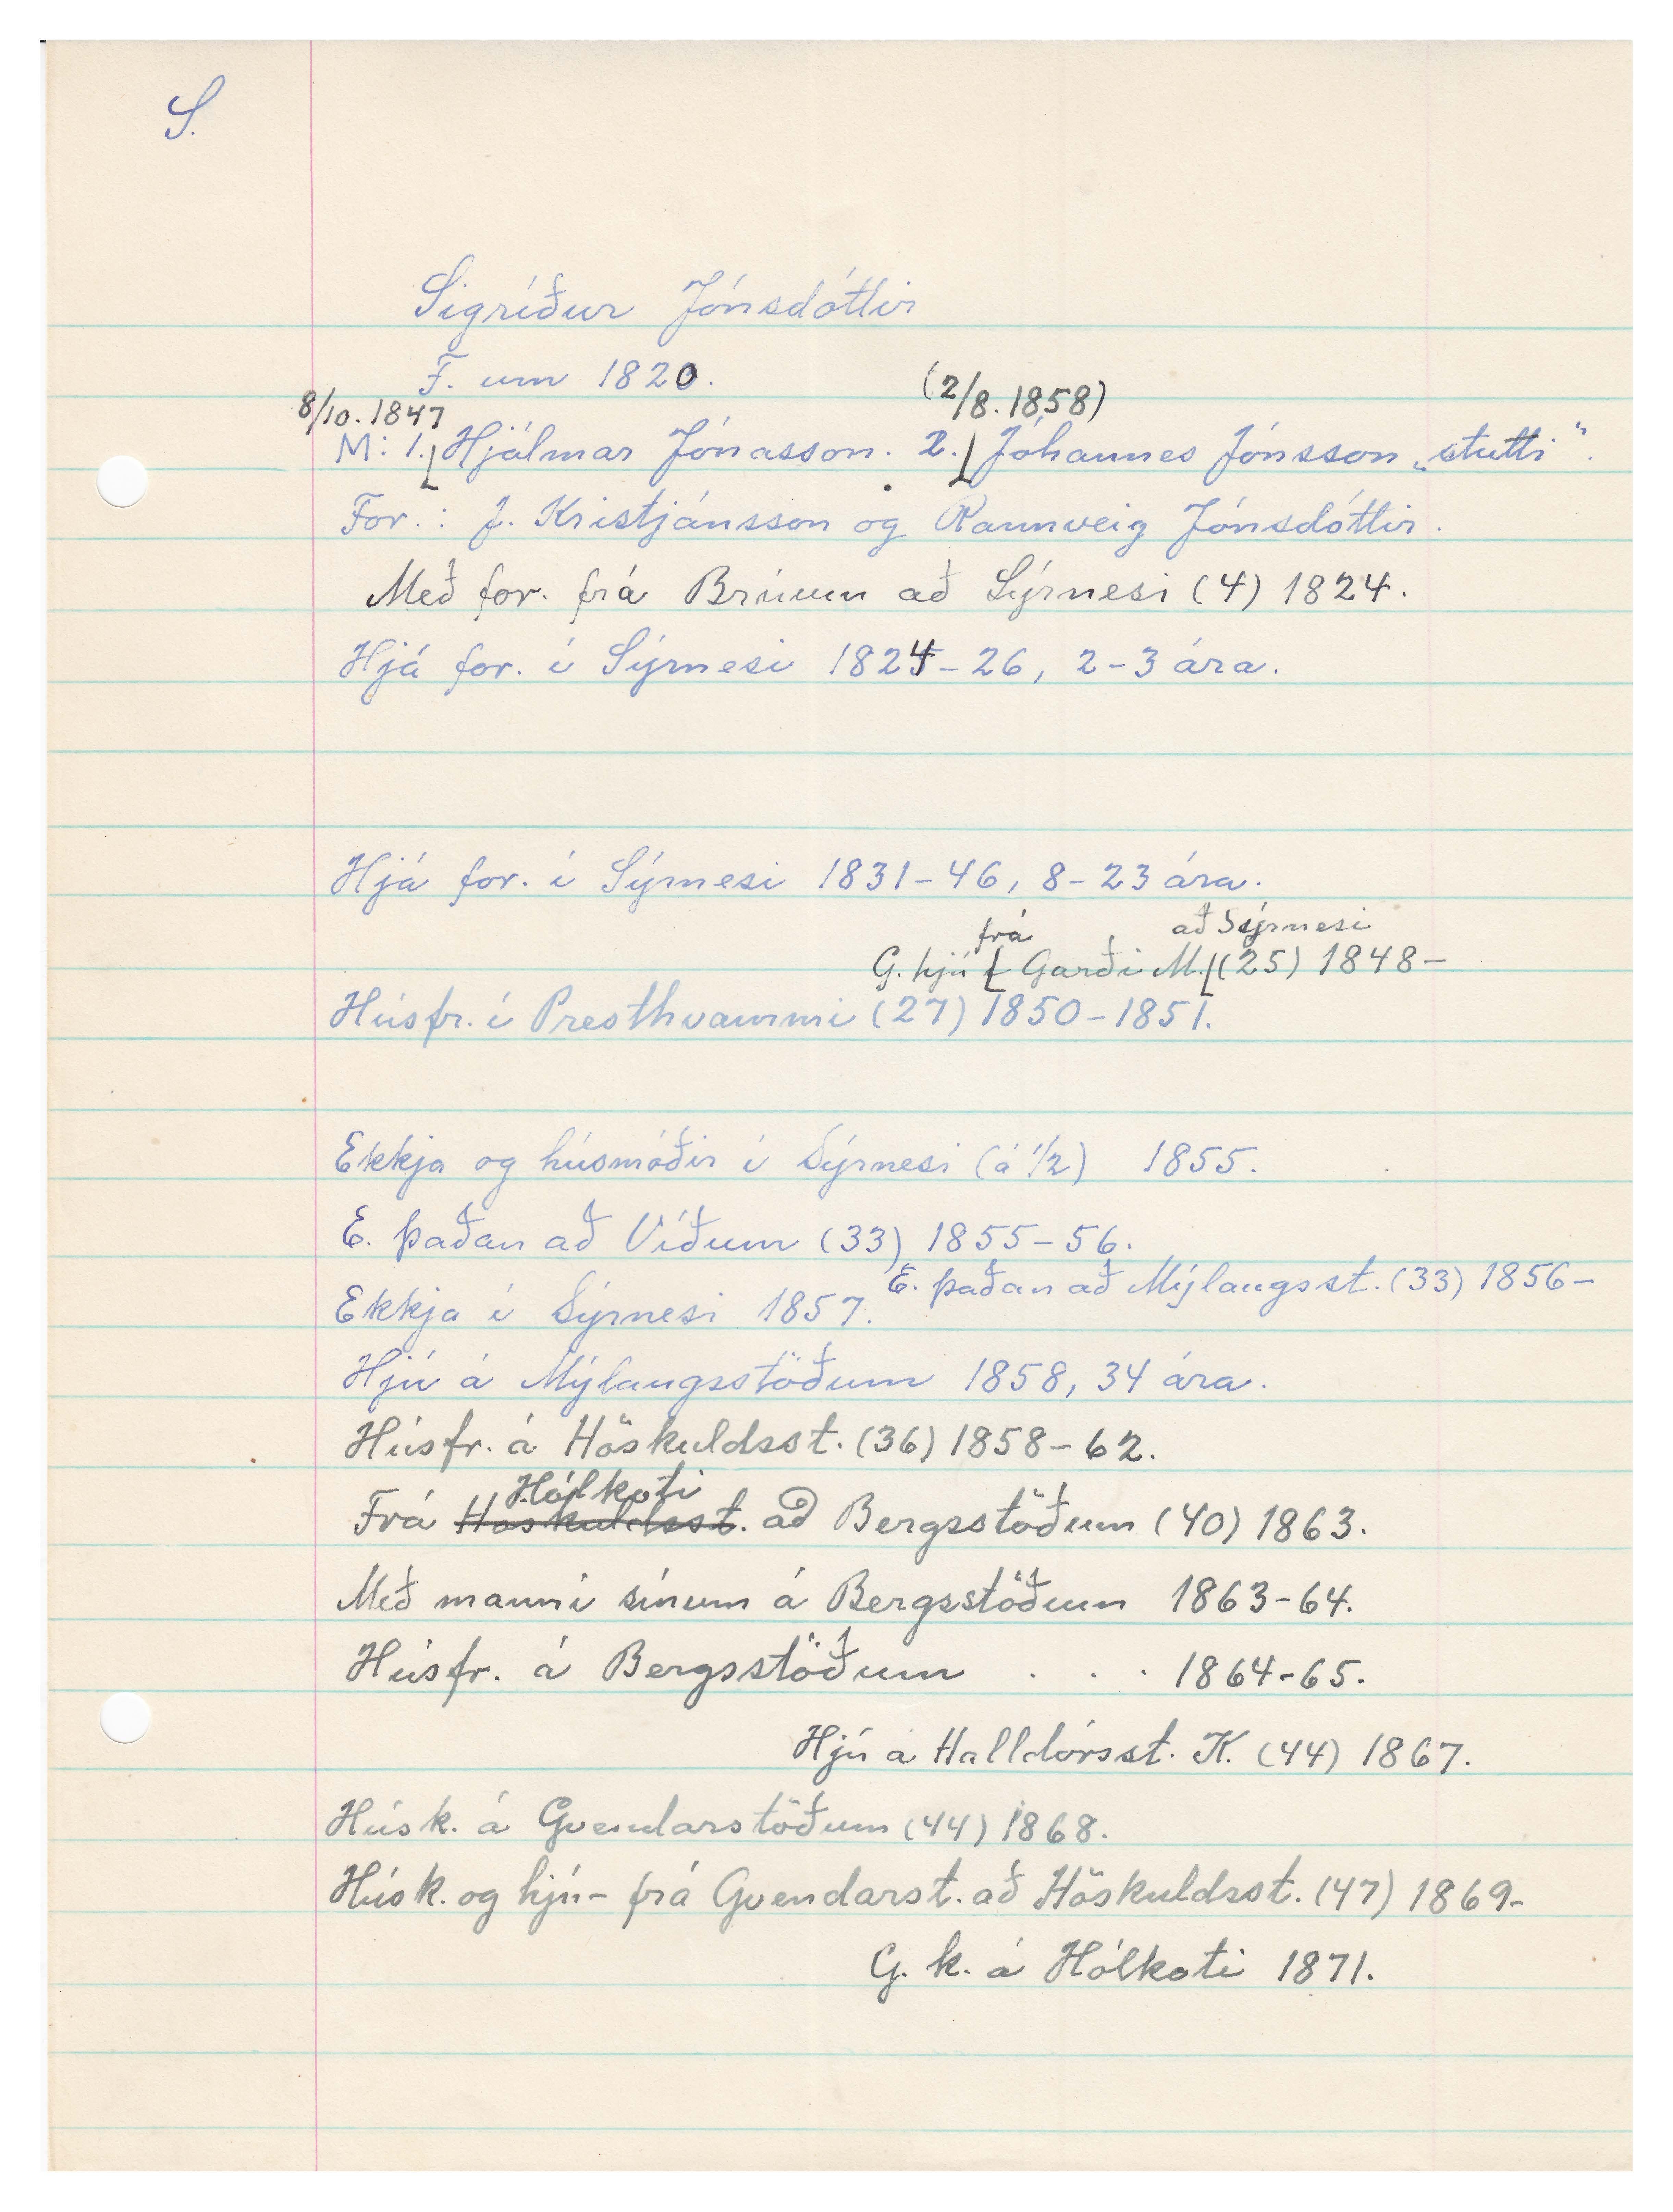 S.
Sigríður Jónsdóttir
F. um 1820.
8/10. 1847 (2/8. 1858)
M: 1. Hjálmar Jónasson. 2. Jóhannes Jónsson „stutti“.
For.: J. Kristjánsson og Rannveig Jónsdóttir.
Með for. frá Brúum að Sýrnesi (4) 1824.
Hjá for. í Sýrnesi 1824-26, 2-3 ára.
Hjá for. í Sýrnesi 1831-46, 8-23 ára.
frá að Sýrnesi
G. hjú Garði M. (25) 1848-
Húsfr. í Presthvammi (27) 1850-1851.
Ekkja og húsmóðir í Sýrnesi (á 1/2) 1855.
E. þaðan að Víðum (33) 1855-56.
E. þaðan að Mýlaugsst. (33) 1856-
Ekkja í Sýrnesi 1857.
Hjú á Mýlaugsstöðum 1858, 34 ára.
Húsfr. á Höskuldsst. (36) 1858-62.
Hólkoti
Frá Höskuldsst. að Bergsstöðum (40) 1863.
Með manni sínum á Bergsstöðum 1863-64.
Húsfr. á Bergsstöðum . . . 1864-65.
Hjú á Halldórsst. K. (44) 1867.
Húsk. á Gvendarstöðum (44) 1868.
Húsk. og hjú- frá Gvendarst. að Höskuldsst. (47) 1869-
G. k. á Hólkoti 1871.